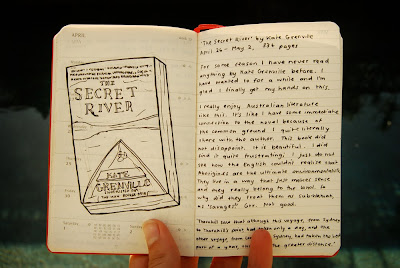 APRIL
THE
SECRET
RIVER
KATE
GRENVILLE
'The Secret River' by Kate Grenville
April 26 - May 2, 334 pages
For some reason I have never read
anything by Kate Grenville before. I
have wanted to for a while and I'm
glad I finally got my hands on this.
I really enjoy Australian literature
like this. It's like I have some immediate
connection to the novel because of
the common ground I quite literally
share with the author. This book did
not disappoint. It is beautiful. I did
find it quite frustrating. I just do not
see how the English couldn't realise that
Aboriginies are the ultimate environmentalists.
They live in a way that just makes sense
and they really belong to the land. So
why did they treat them as subhuman,
as "savages". Grr. Not good.
Thornhill said that although this voyage, from Sydney
to Thornhill's point had taken only a day, and the
other voyage from London to Sydney, had taken the best
part of a year, this was the greater distance."